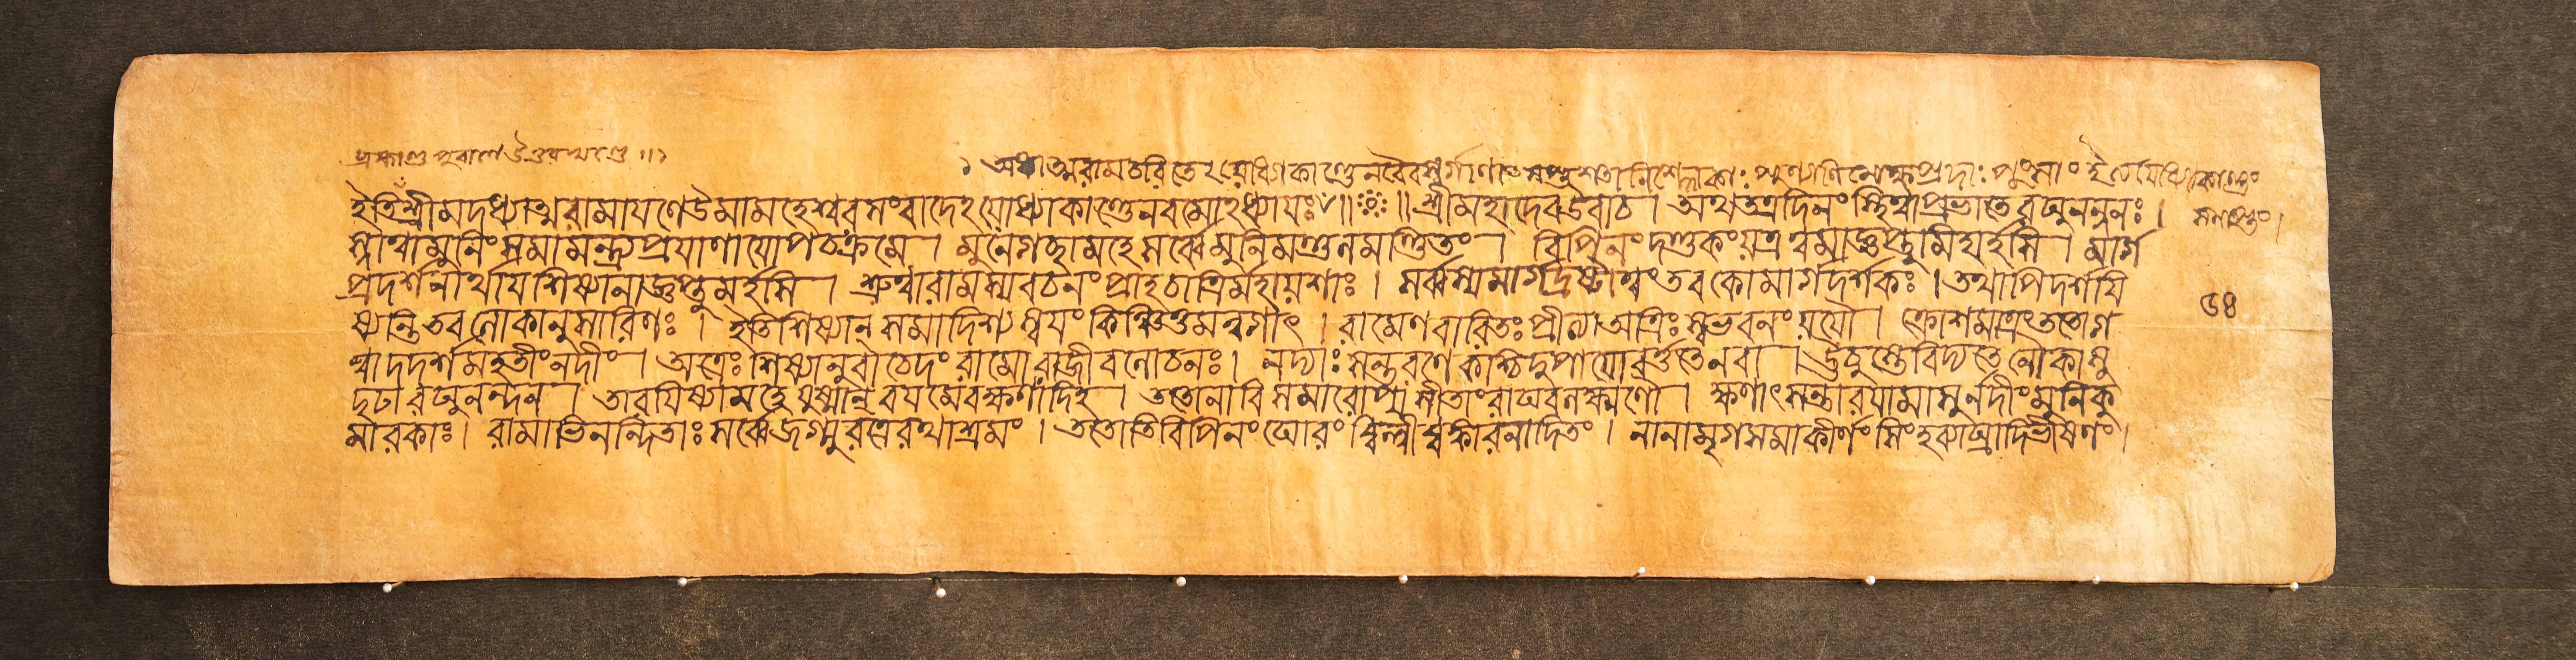 ব্রহ্মাণ্ড পুরাণে উত্তরখণ্ডে ॥
অধ্যাত্মরামচরিতেঽযোধ্যাকাণ্ডে নবৈব সর্গাণাং সপ্তশতানি শ্লোকাঃ পুণ্যানি মোক্ষপ্রদাঃ পুংসাং
ইতি শ্রীমদধ্যাত্মরামাযণেউমামহেশ্বরসংবাদেঽযোধ্যাকাণ্ডেনবমোঽধ্যাযঃ ॥ ॥ শ্রীমহাদেবউবাচ । অথতত্রদিনংস্থিত্বাপ্রভাতেরঘুনন্দনঃ ।
সমাপ্তং ।
স্নাত্বামুনিংসমামন্ত্র্যপ্রযাণাযোপচক্রমে । মুনেগচ্ছামহেসর্ব্বেমুনিমণ্ডলমণ্ডিতং । বিপিনংদণ্ডকংযত্রত্বমাজ্ঞপ্তুমিহার্হসি । মার্গ
প্রদর্শনার্থাযশিষ্যানাজ্ঞপ্তুমর্হসি । শ্রুত্বারামস্যবচনংপ্রাহচাত্রির্মহাযশাঃ । সর্ব্বস্যমার্গদ্রষ্টাত্বংতবকোমার্গদর্শকঃ । তথাপিদর্শযি
৬৪
ষ্যন্তিতবলোকানুসারিণঃ । ইতিশিষ্যান্ সমাদিশ্যস্বযংকিঞ্চিত্তমন্বগাৎ । রামেণবারিতঃপ্রীত্যাঅত্রিঃস্বভবনংযযৌ । ক্রোশমাত্রংততোগ
ত্বাদদর্শমহতীংনদীং । অত্রেঃশিষ্যানুবাচেদংরামোরাজীবলোচনঃ । নদ্যাঃসন্তরণেকশ্চিদুপাযোবর্ত্ততেনবা । ঊচুস্তেবিদ্যতেনৌকাসু
দৃঢারঘুনন্দন । তারযিষ্যামহেযুষ্মান্ বযমেবক্ষণাদিহ । ততোনাবিসমারোপ্যসীতাংরাঘবলক্ষ্মণৌ । ক্ষণাৎসন্তারযামাসুর্নদীংমুনিকু
মারকাঃ । রামাভিনন্দিতাঃসর্ব্বেজগ্মুরত্রেরথাশ্রমং । ততোতিবিপিনংঘোরংঝিল্লীঝঙ্কারনাদিতং । নানামৃগসমাকীর্ণংসিংহব্যাঘ্রাদিভীষণং ।